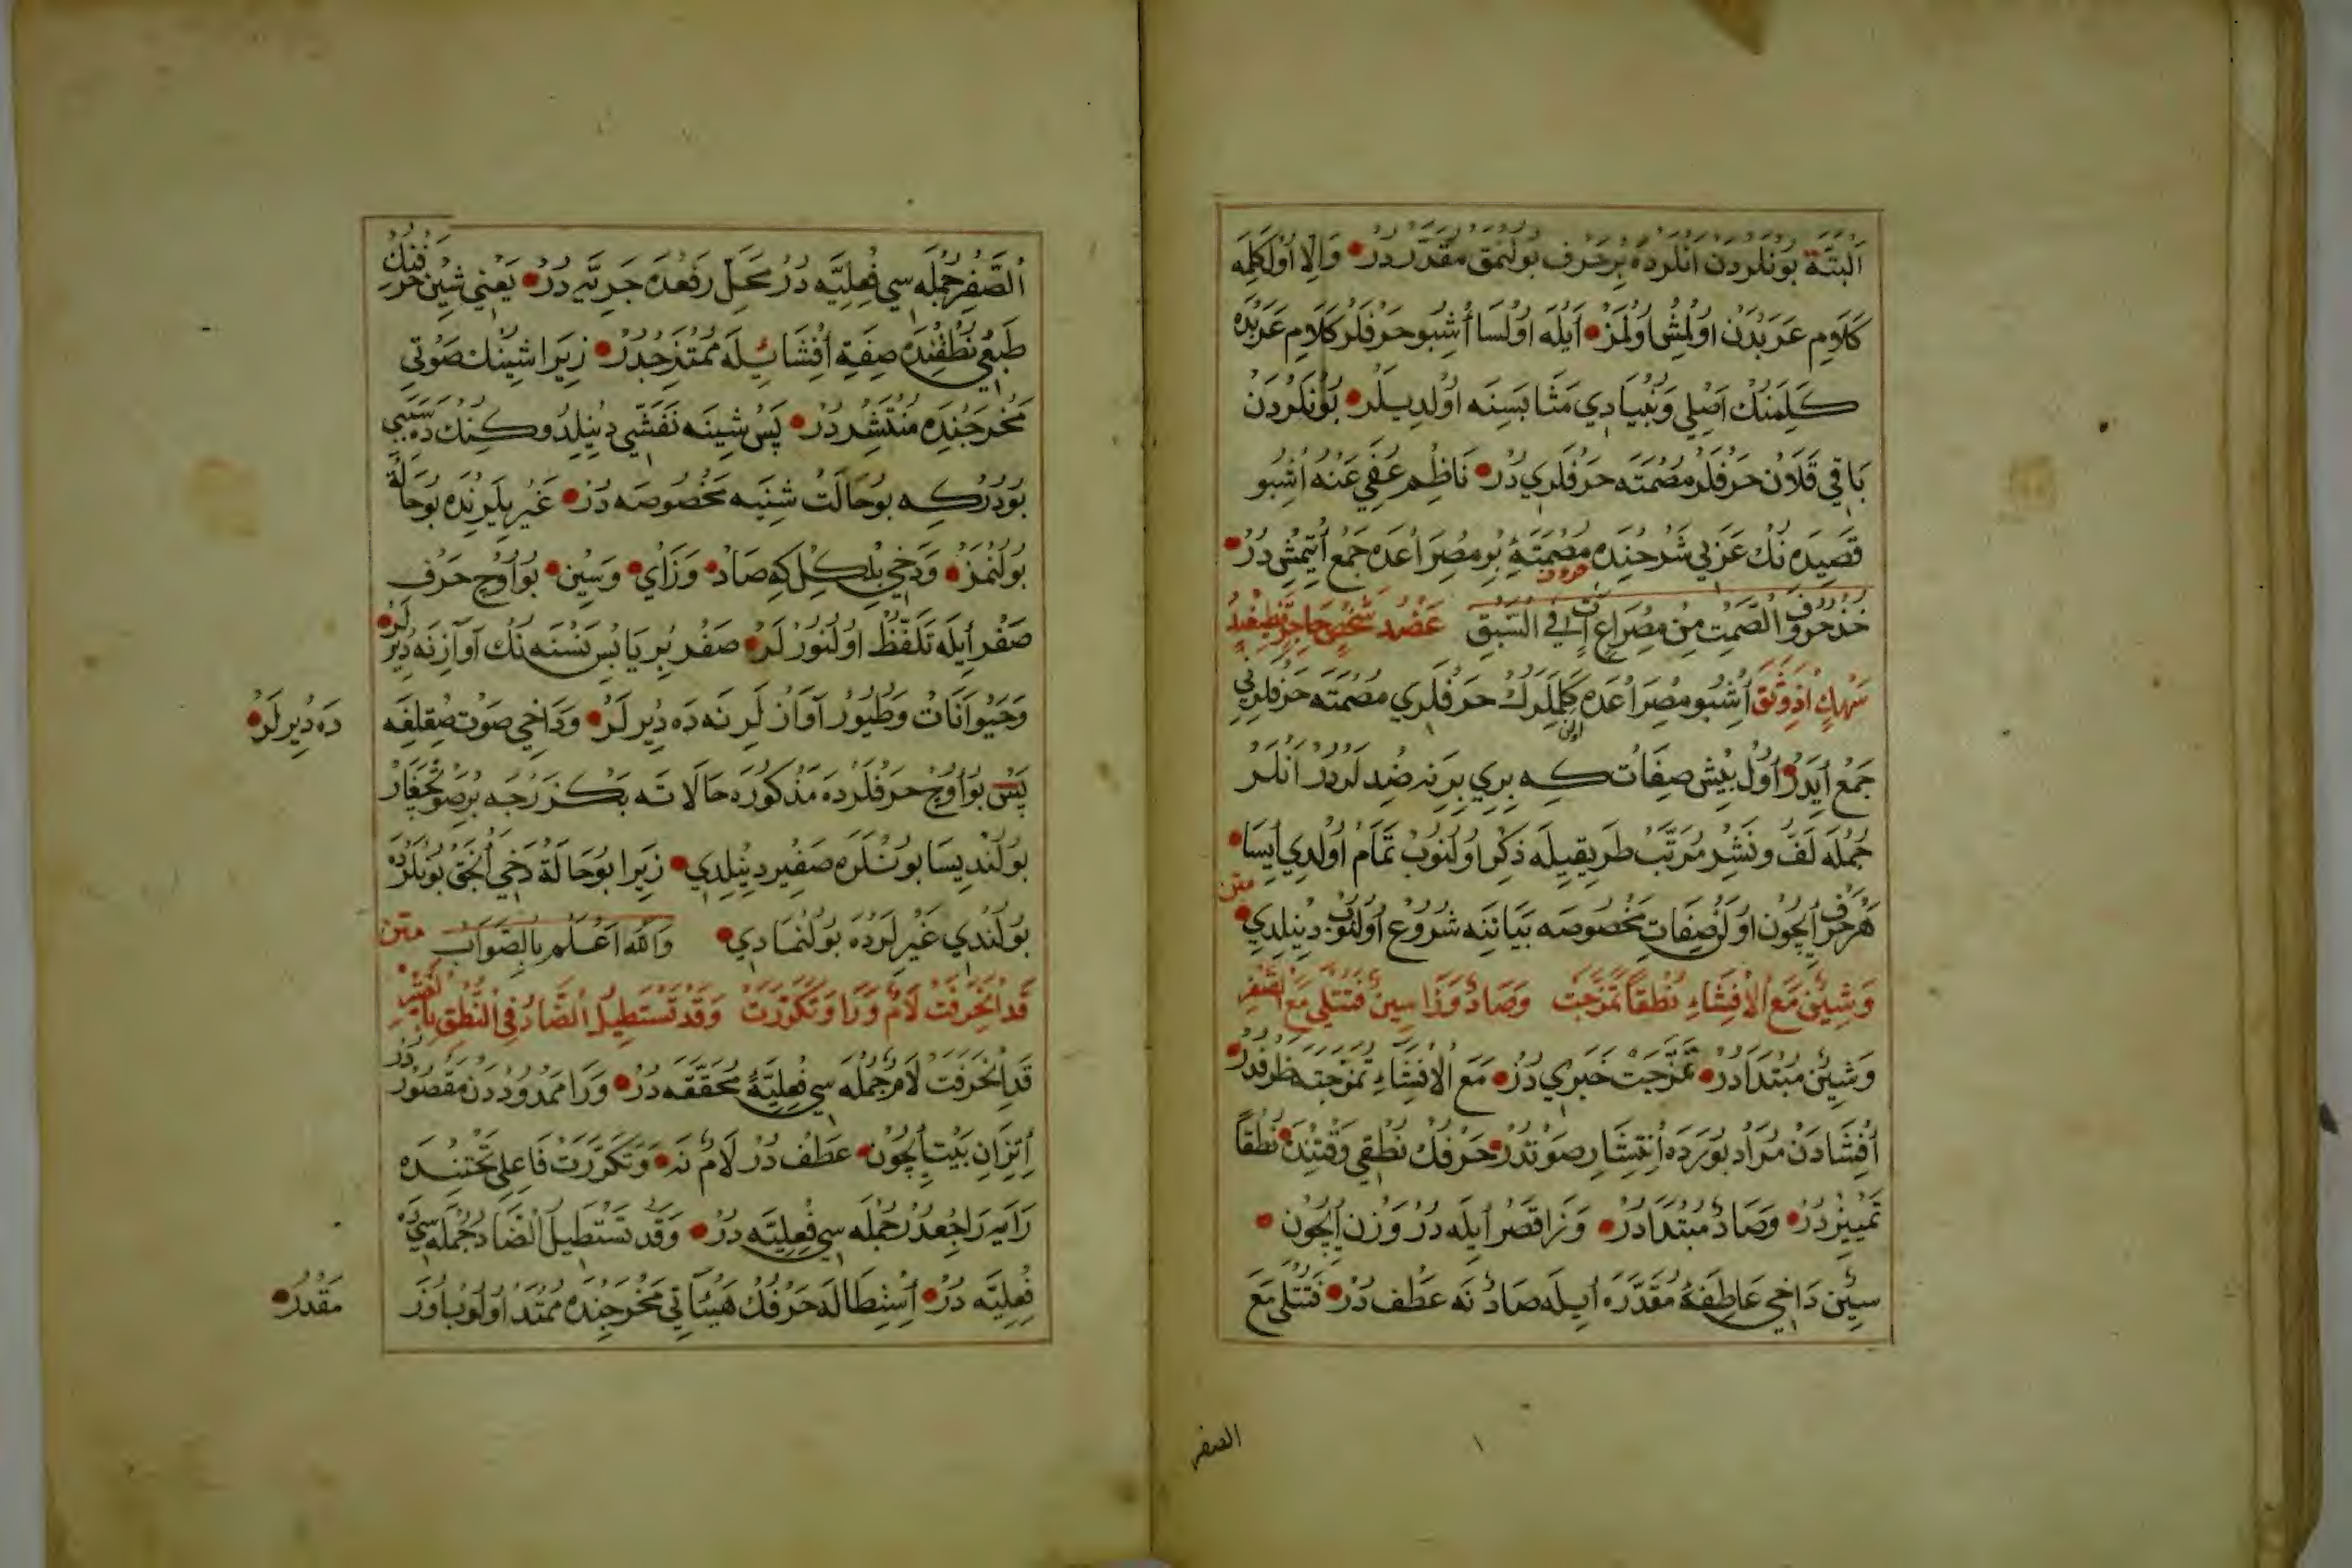 اَلبتَّة بُونلردن اَنلرده بِرحَرف بولنمق مقدّر در وَاِلاّ اول كَلِمَه
كَلاَمِ عَربدن اولمش اولمز اَيله اولسا اُشبو حرفلر كلام عربده
كَلِمنك اصلي وَبُنيادي مثابسنه اولديلر بونلردن
باقي قلان حرفلر مصمته حرفلري در ناظم عفي عنه اشبو
قصيده نك عربي شرحنده مصمتهٔ بر مصراعده جمع اتيمشدر
حروف
خذ حروف الصَّمت من مصراع آت في السّبق عضد شخص حاجز
سهك اذ وثق اُشبو مصراعده كلملرك حرفلري مصمته حرفلريني
اولان
جمع ايدر اول بيش صفات كه بري برنه ضد لردر انلر
جمله لف و نشر مرتّب طريقيله ذكر اولنوب تمام اولدي ايسا
متن
هر حرف ايچون اولن صفات مخصوصه بياننه شروع اولنوب دينلدي
وَشين مع الافشاء نطقًا تمزجت وصاد وزا سين فتتلي مع الصفر
وشين مبتدادر تمزجت خبري در مع الافشاء تمزجته ظرفدر
افشادن مراد بورده انتشار صوتدر حرفك نطقي وقتنده نطقًا
تمييز در وصاد مبتدادر وزا قصر ايله در وزن ايچون
سين داخي عاطفهٔ مقدّره ايله صاد نه عطف در فتتلي مع
الصفر
الصّفر جمله سي فعليّه در محل رفعده خبريّه در يعني شين حرفنك
طبعي نطقنده صفة افشائيله ممتزجدر زيرا شينك صوتي
مخرجنده منتشردر پس شينه تفشّي دينيلدوكنك ده سببي
بودر كه بوحالت شينه مخصوصه در غيريلرنده بوحالة
بولنمز ودخي بلكل كه صاد وزاي وسين بو اوچ حرف
صفر ايله تلفّظ اولنور لر صفر بر يابس نسنه نك آوازنه ديرلر
وحيوانات وطيور آواز لرنه ده ديرلر وداخي صوت صقلغه
ده ديرلر
پس بو اوچ حرفلرده مذكوره حالاته بكزرجه بر صوتجغاز
بولنديسا بونلره صفير دينلدي زيرا بوحالة دخي انجق بونلرده
بولندي غيرلرده بولنمادي والله اعلم بالصّواب متن
قد انحرفت لام ورا وتكرّرت وقد تستطيل الضّاد في النّطق بالنشر
قد انحرفت لام جمله سي فعليّهٔ محقّقه در ورا ممدوددن مقصوردر
اتّزان بيت ايچون عطف در لام نه وتكرّرت فاعلي تحتنده
رايه راجعدر جمله سي فعليّه در وقد تستطيل الضّاد جمله سي ده
فعليّه در استطاله حرفك هيئاتي مخرجنده ممتدّ اولوب اوز
مقدر